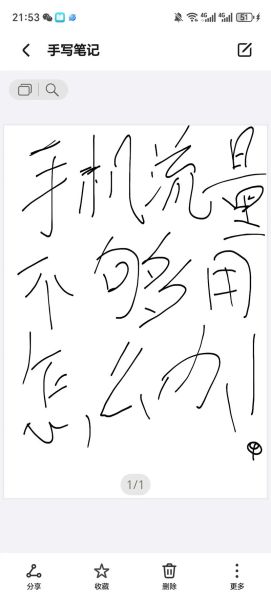 21:53 4G 4G 51
手写笔记
手机流量
不够用
怎么办!
1/1
分享 收藏 删除 更多